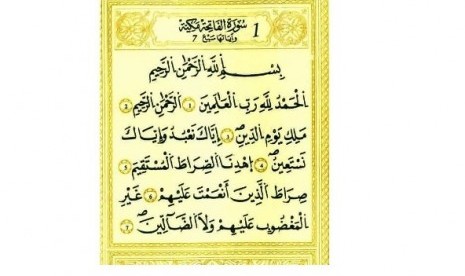 سُورَةُ الفَاتِحَةِ مَكِّيَّة 1
وَآيَاتُهَا سَبْعٌ 7
بِسْمِ اللَّهِ الرَّحْمَٰنِ الرَّحِيمِ
الْحَمْدُ لِلَّهِ رَبِّ الْعَالَمِينَ ١ الرَّحْمَٰنِ الرَّحِيمِ ٢
مَلِكِ يَوْمِ الدِّينِ ٣ إِيَّاكَ نَعْبُدُ وَإِيَّاكَ
نَسْتَعِينُ ٤ اهْدِنَا الصِّرَاطَ الْمُسْتَقِيمَ ٥
صِرَاطَ الَّذِينَ أَنْعَمْتَ عَلَيْهِمْ ٦ غَيْرِ
الْمَغْضُوبِ عَلَيْهِمْ وَلَا الضَّالِّينَ ٧